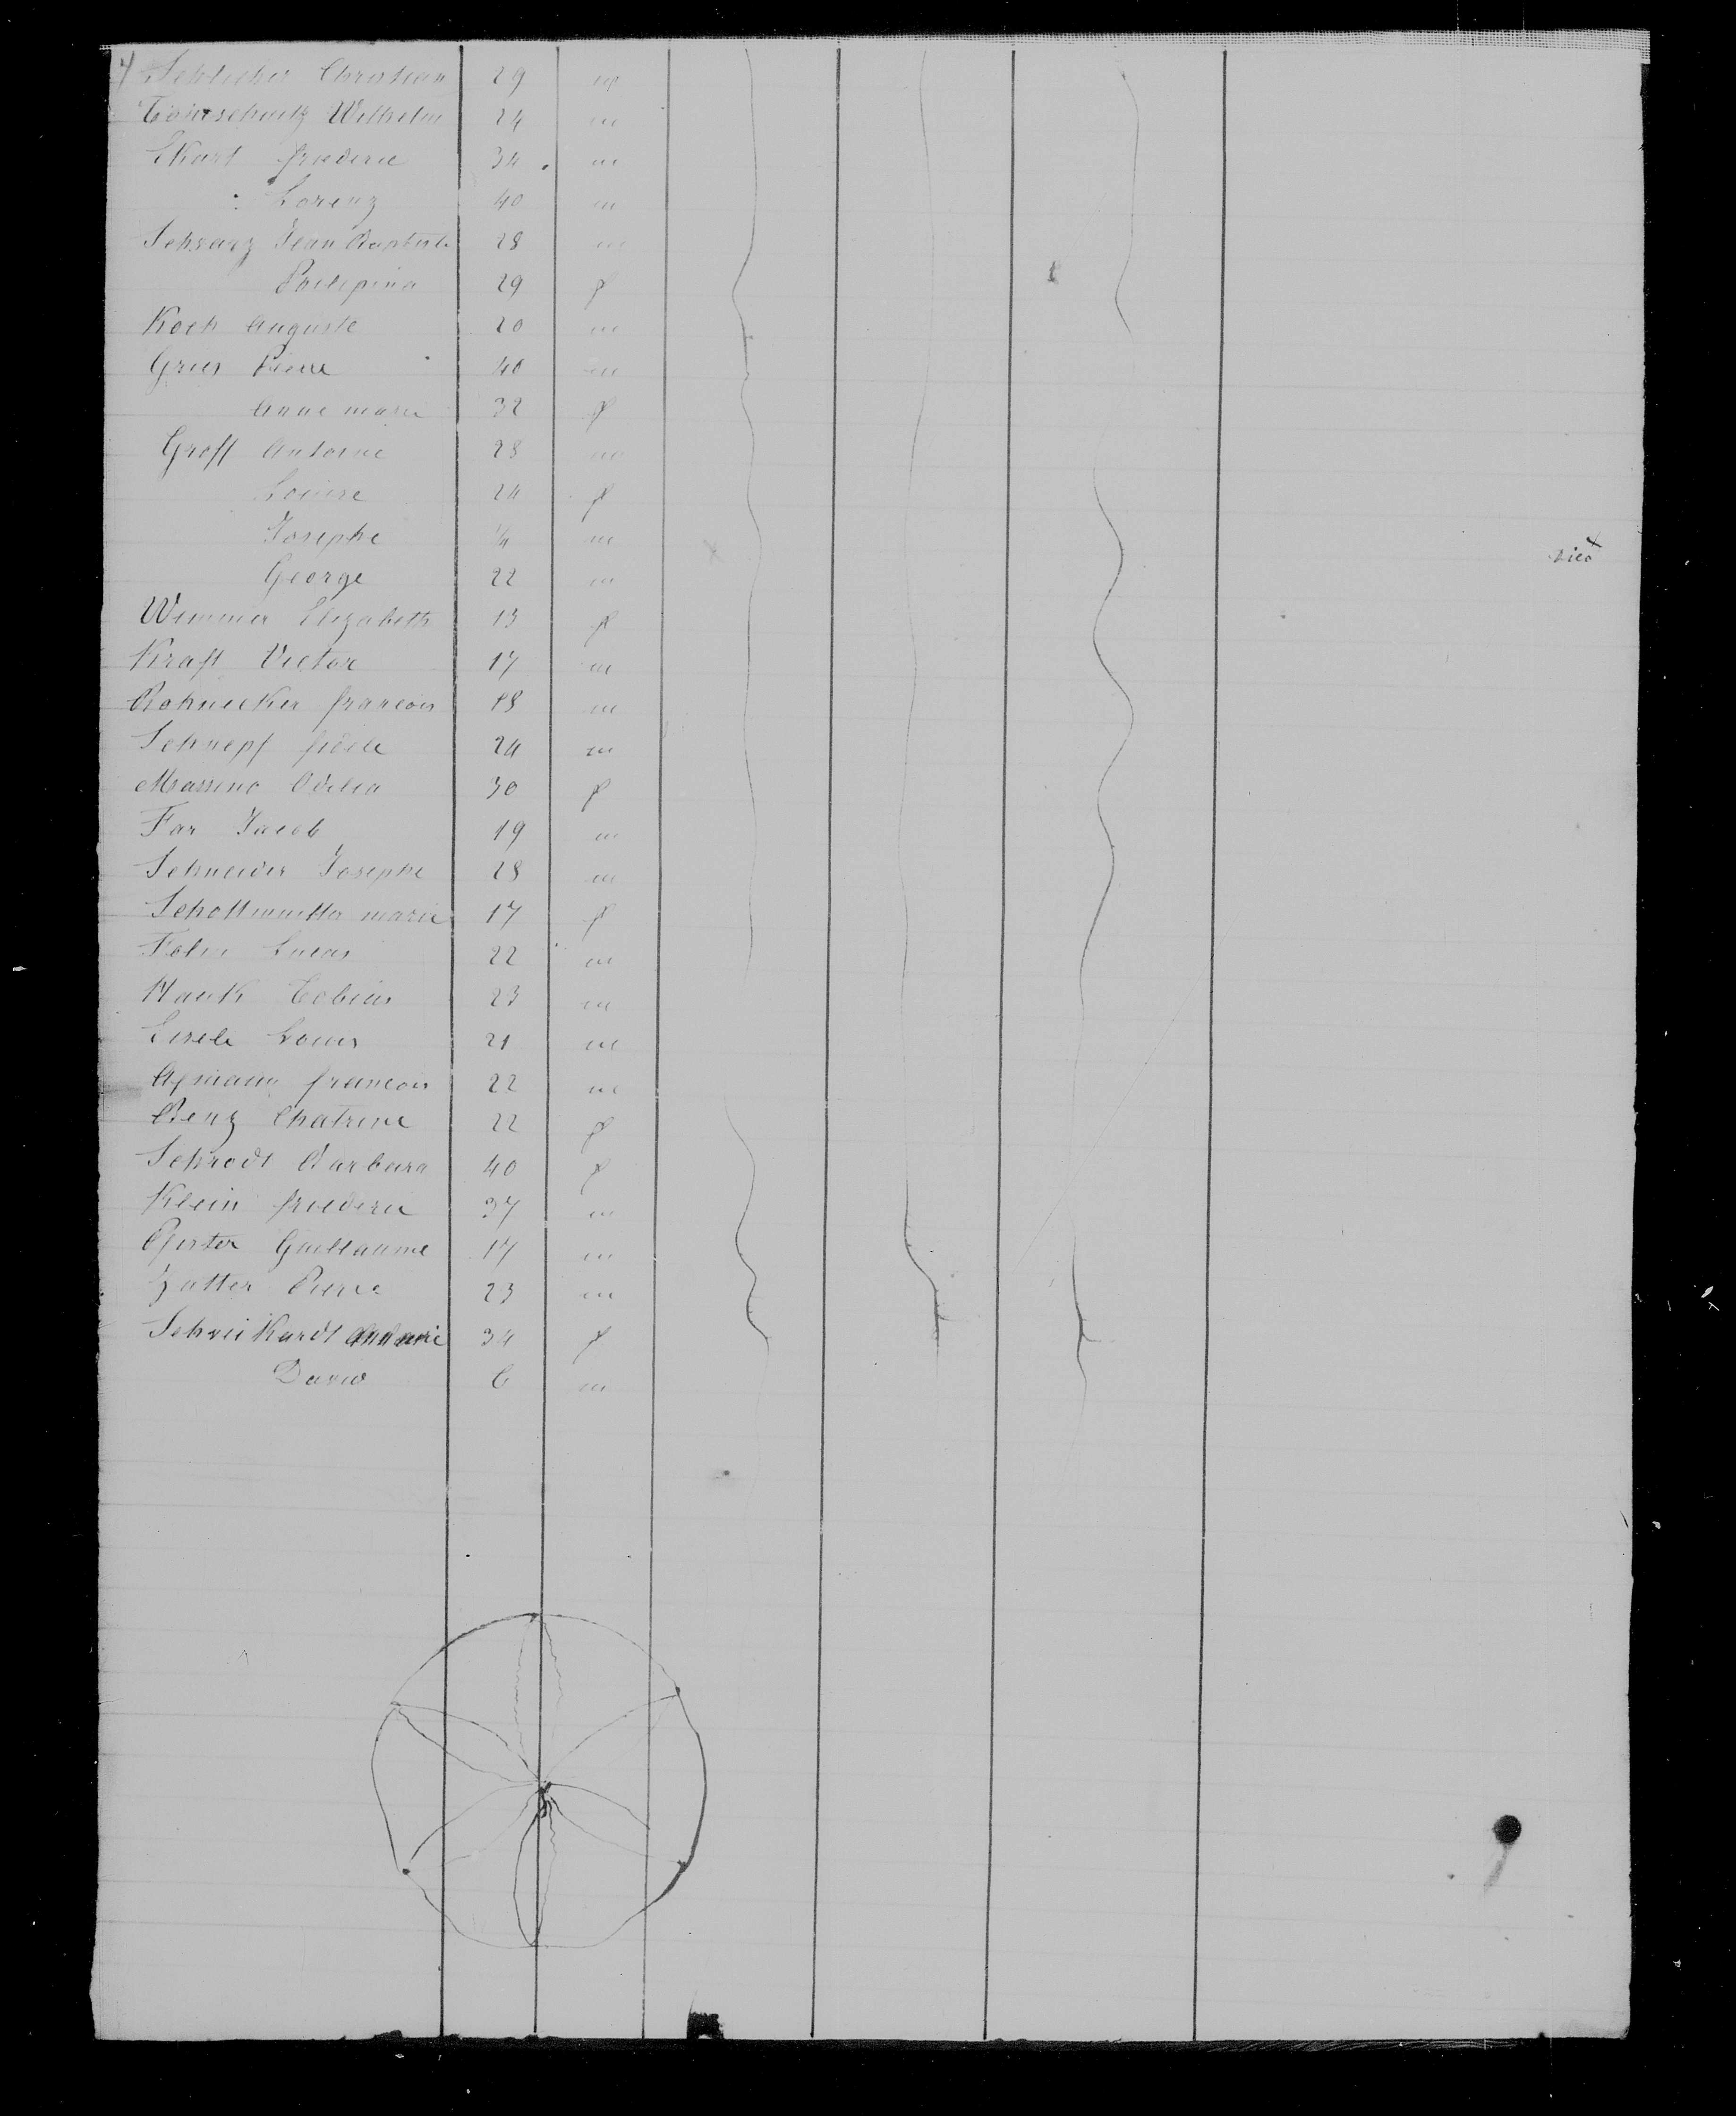 Schlicher Christian 29 m
Wilhelm 24 m
Ekart frederic 34 m
Lorenz 40 m
Schvarz Jean Baptiste 28 m
Philipina 29 f
Koch Auguste 20 m
Gries Pierre 40 m
Anne marie 32 f
Groff Antoine 28 m
Louise 24 f
Josephe 1/4 m died
George 22 m
Wimmer Elizabeth 13 f
Kraft Victor 17 m
Rohnecker francois 18 m
Schnepf fidele 24 m
Massino Odilia 30 f
Far Jacob 19 m
Schneider Josephe 28 m
marie 17 f
Lucas 22 m
Hauk Tobias 23 m
Eisele Louis 21 m
francois 22 m
Benz Chatrine 22 f
Schrodt Barbara 40 f
Klein frederic 37 m
Guillaume 17 m
Zutter Pierre 23 m
Schveikardt 34 f
David 6 m